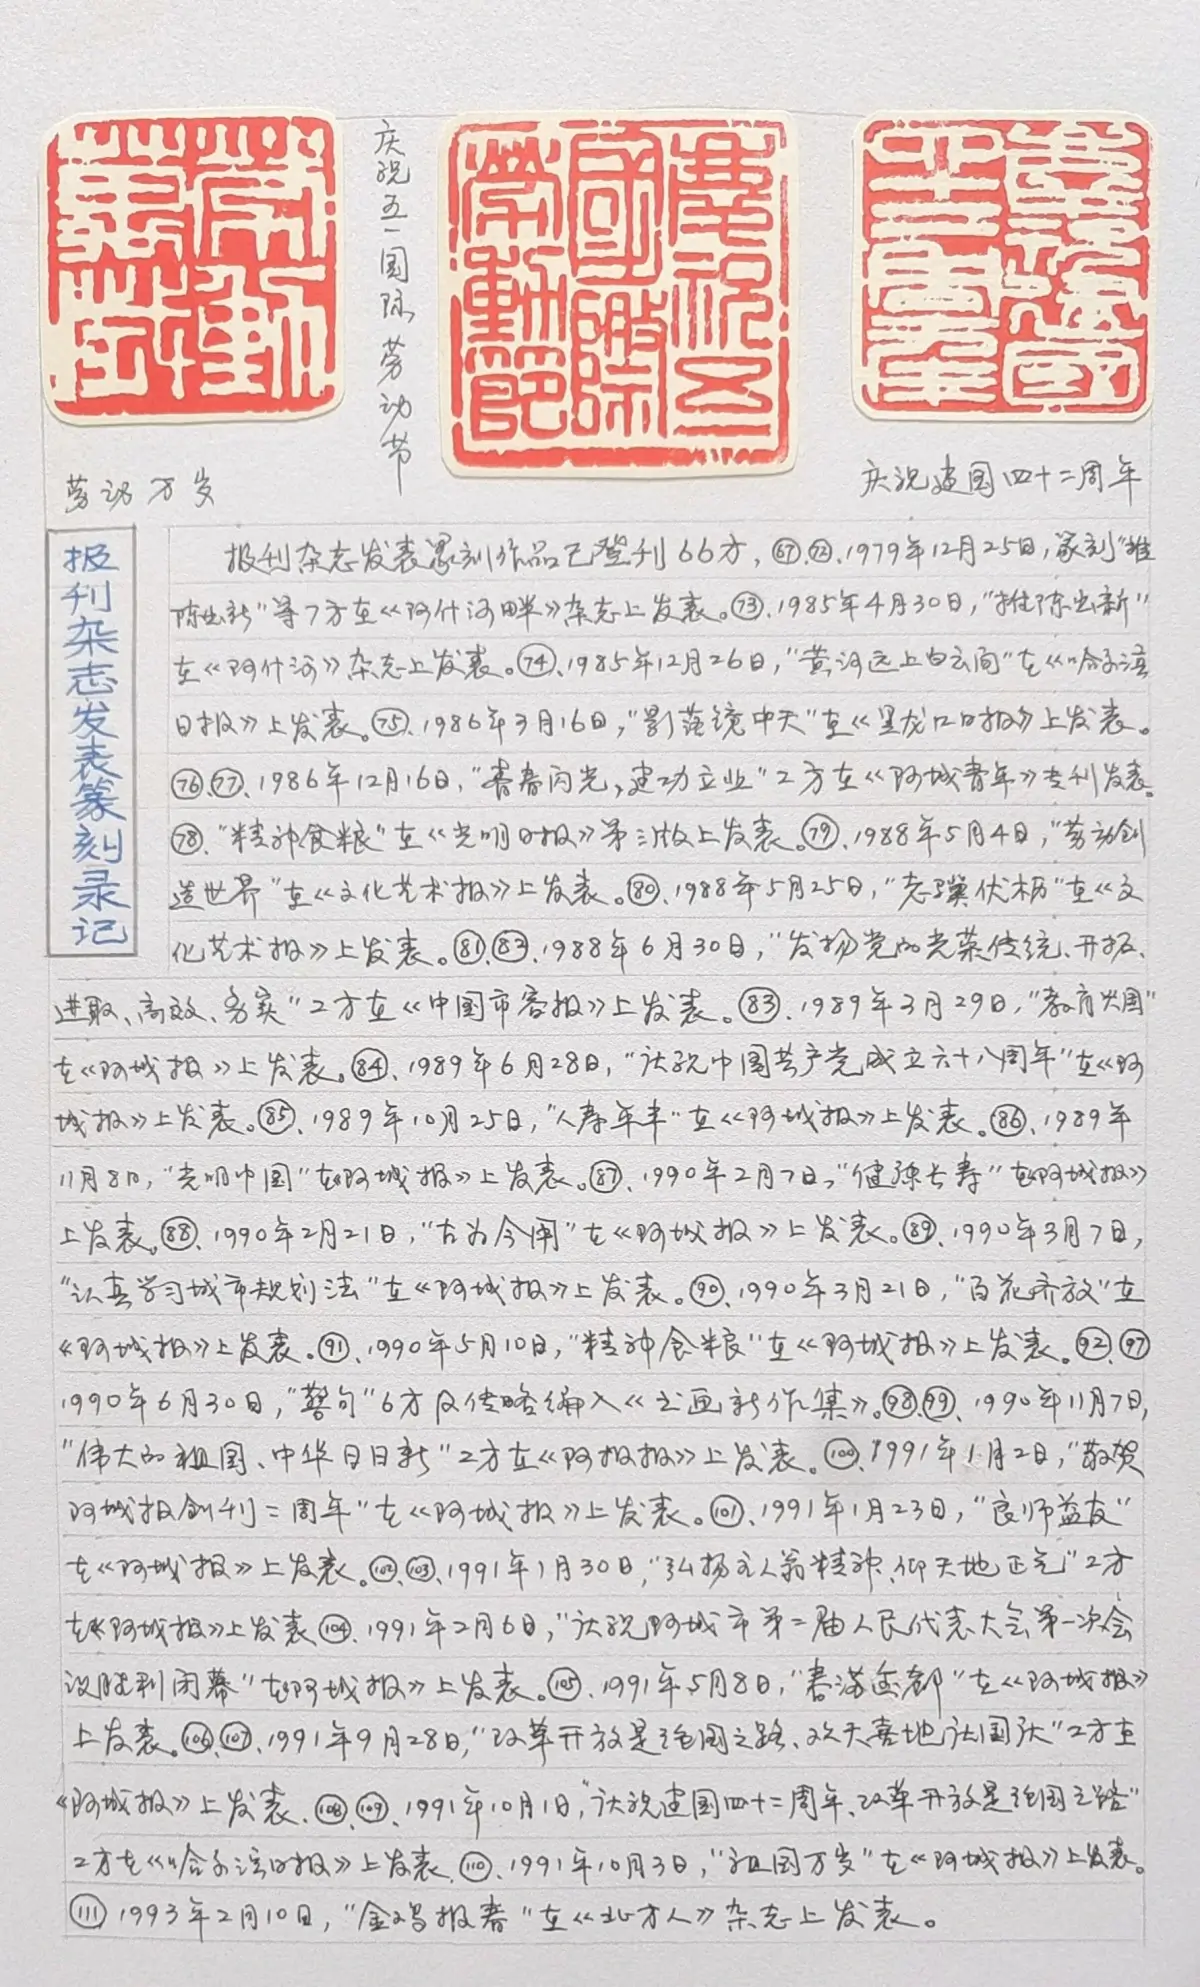 劳动万岁
庆祝五一国际劳动节
庆祝五一国际劳动节
庆祝建国四十二周年
劳动万岁
庆祝建国四十二周年
报刊杂志发表篆刻录记
报刊杂志发表篆刻作品已登刊66方，㊿+17.72.1979年12月25日，篆刻“推
陈出新”等7方在《阿什河畔》杂志上发表。73.1985年4月30日，“推陈出新”
在《阿什河》杂志上发表。74.1985年12月26日，“黄河远上白云间”在《哈尔滨
日报》上发表。75.1986年3月16日，“影落镜中天”在《黑龙江日报》上发表。
76.77.1986年12月16日，“青春闪光，建功立业”2方在《阿城青年》专刊发表。
78.“精神食粮”在《光明日报》第三版上发表。79.1988年5月4日，“劳动创
造世界”在《文化艺术报》上发表。80.1988年5月25日，“志骥伏枥”在《文
化艺术报》上发表。81.83.1988年6月30日，“发扬党的光荣传统、开拓、
进取、高效、务实”2方在《中国市容报》上发表。83.1989年3月29日，“教育兴国”
在《阿城报》上发表。84.1989年6月28日，“庆祝中国共产党成立六十八周年”在《阿
城报》上发表。85.1989年10月25日，“人寿年丰”在《阿城报》上发表。86.1989年
11月8日，“光明中国”在《阿城报》上发表。87.1990年2月7日，“健康长寿”在《阿城报》
上发表。88.1990年2月21日，“古为今用”在《阿城报》上发表。89.1990年3月7日，
“认真学习城市规划法”在《阿城报》上发表。90.1990年3月21日，“百花齐放”在
《阿城报》上发表。91.1990年5月10日，“精神食粮”在《阿城报》上发表。92.97
1990年6月30日，“警句”6方及传略编入《书画新作集》。98.99.1990年11月7日，
“伟大的祖国、中华日日新”2方在《阿报报》上发表。100.1991年1月2日，“敬贺
阿城报创刊二周年”在《阿城报》上发表。101.1991年1月23日，“良师益友”
在《阿城报》上发表。102.103.1991年1月30日，“弘扬主人翁精神、仰天地正气”2方
在《阿城报》上发表104.1991年2月6日，“庆祝阿城市第二届人民代表大会第一次会
议胜利闭幕”在《阿城报》上发表。105.1991年5月8日，“春满金都”在《阿城报》
上发表。106.107.1991年9月28日，“改革开放是强国之路、欢天喜地庆国庆”2方在
《阿城报》上发表、108.109.1991年10月1日，“庆祝建国四十二周年、改革开放是强国之路”
2方在《哈尔滨日报》上发表、110.1991年10月3日，“祖国万岁”在《阿城报》上发表。
111 1993年2月10日，“金鸡报春”在《北方人》杂志上发表。